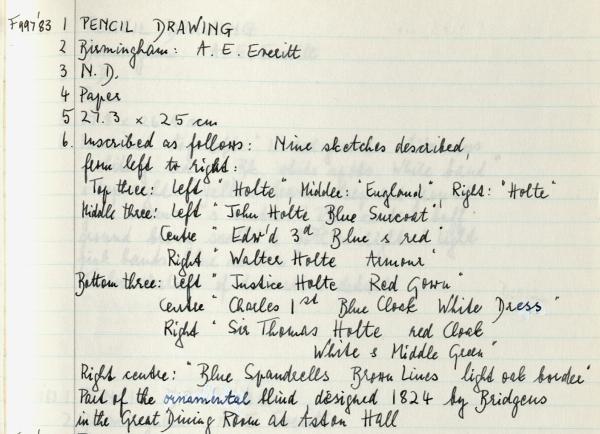 F997'83 1 PENCIL DRAWING
2 Birmingham: A. E. Everitt
3 N.D.
4 Paper
5 27.3 x 25 cm
6. Inscribed as follows: Nine sketches described,
from left to right:
Top three: Left "Holte" Middle: England" Right: "Holte"
Middle three: Left "John Holte Blue Surcoat"
Centre "Edw'd 3rd Blue & red"
Right "Walter Holte Armour"
Bottom three: Left "Justice Holte Red Gown"
Centre "Charles 1st Blue Cloak White Dress"
Right "Sir Thomas Holte red Cloak
White & Middle Green"
Right centre: "Blue Spandrells Brown Lines light oak border"
Part of the ornamental blind designed 1824 by Bridgens
in the Great Dining Room at Aston Hall